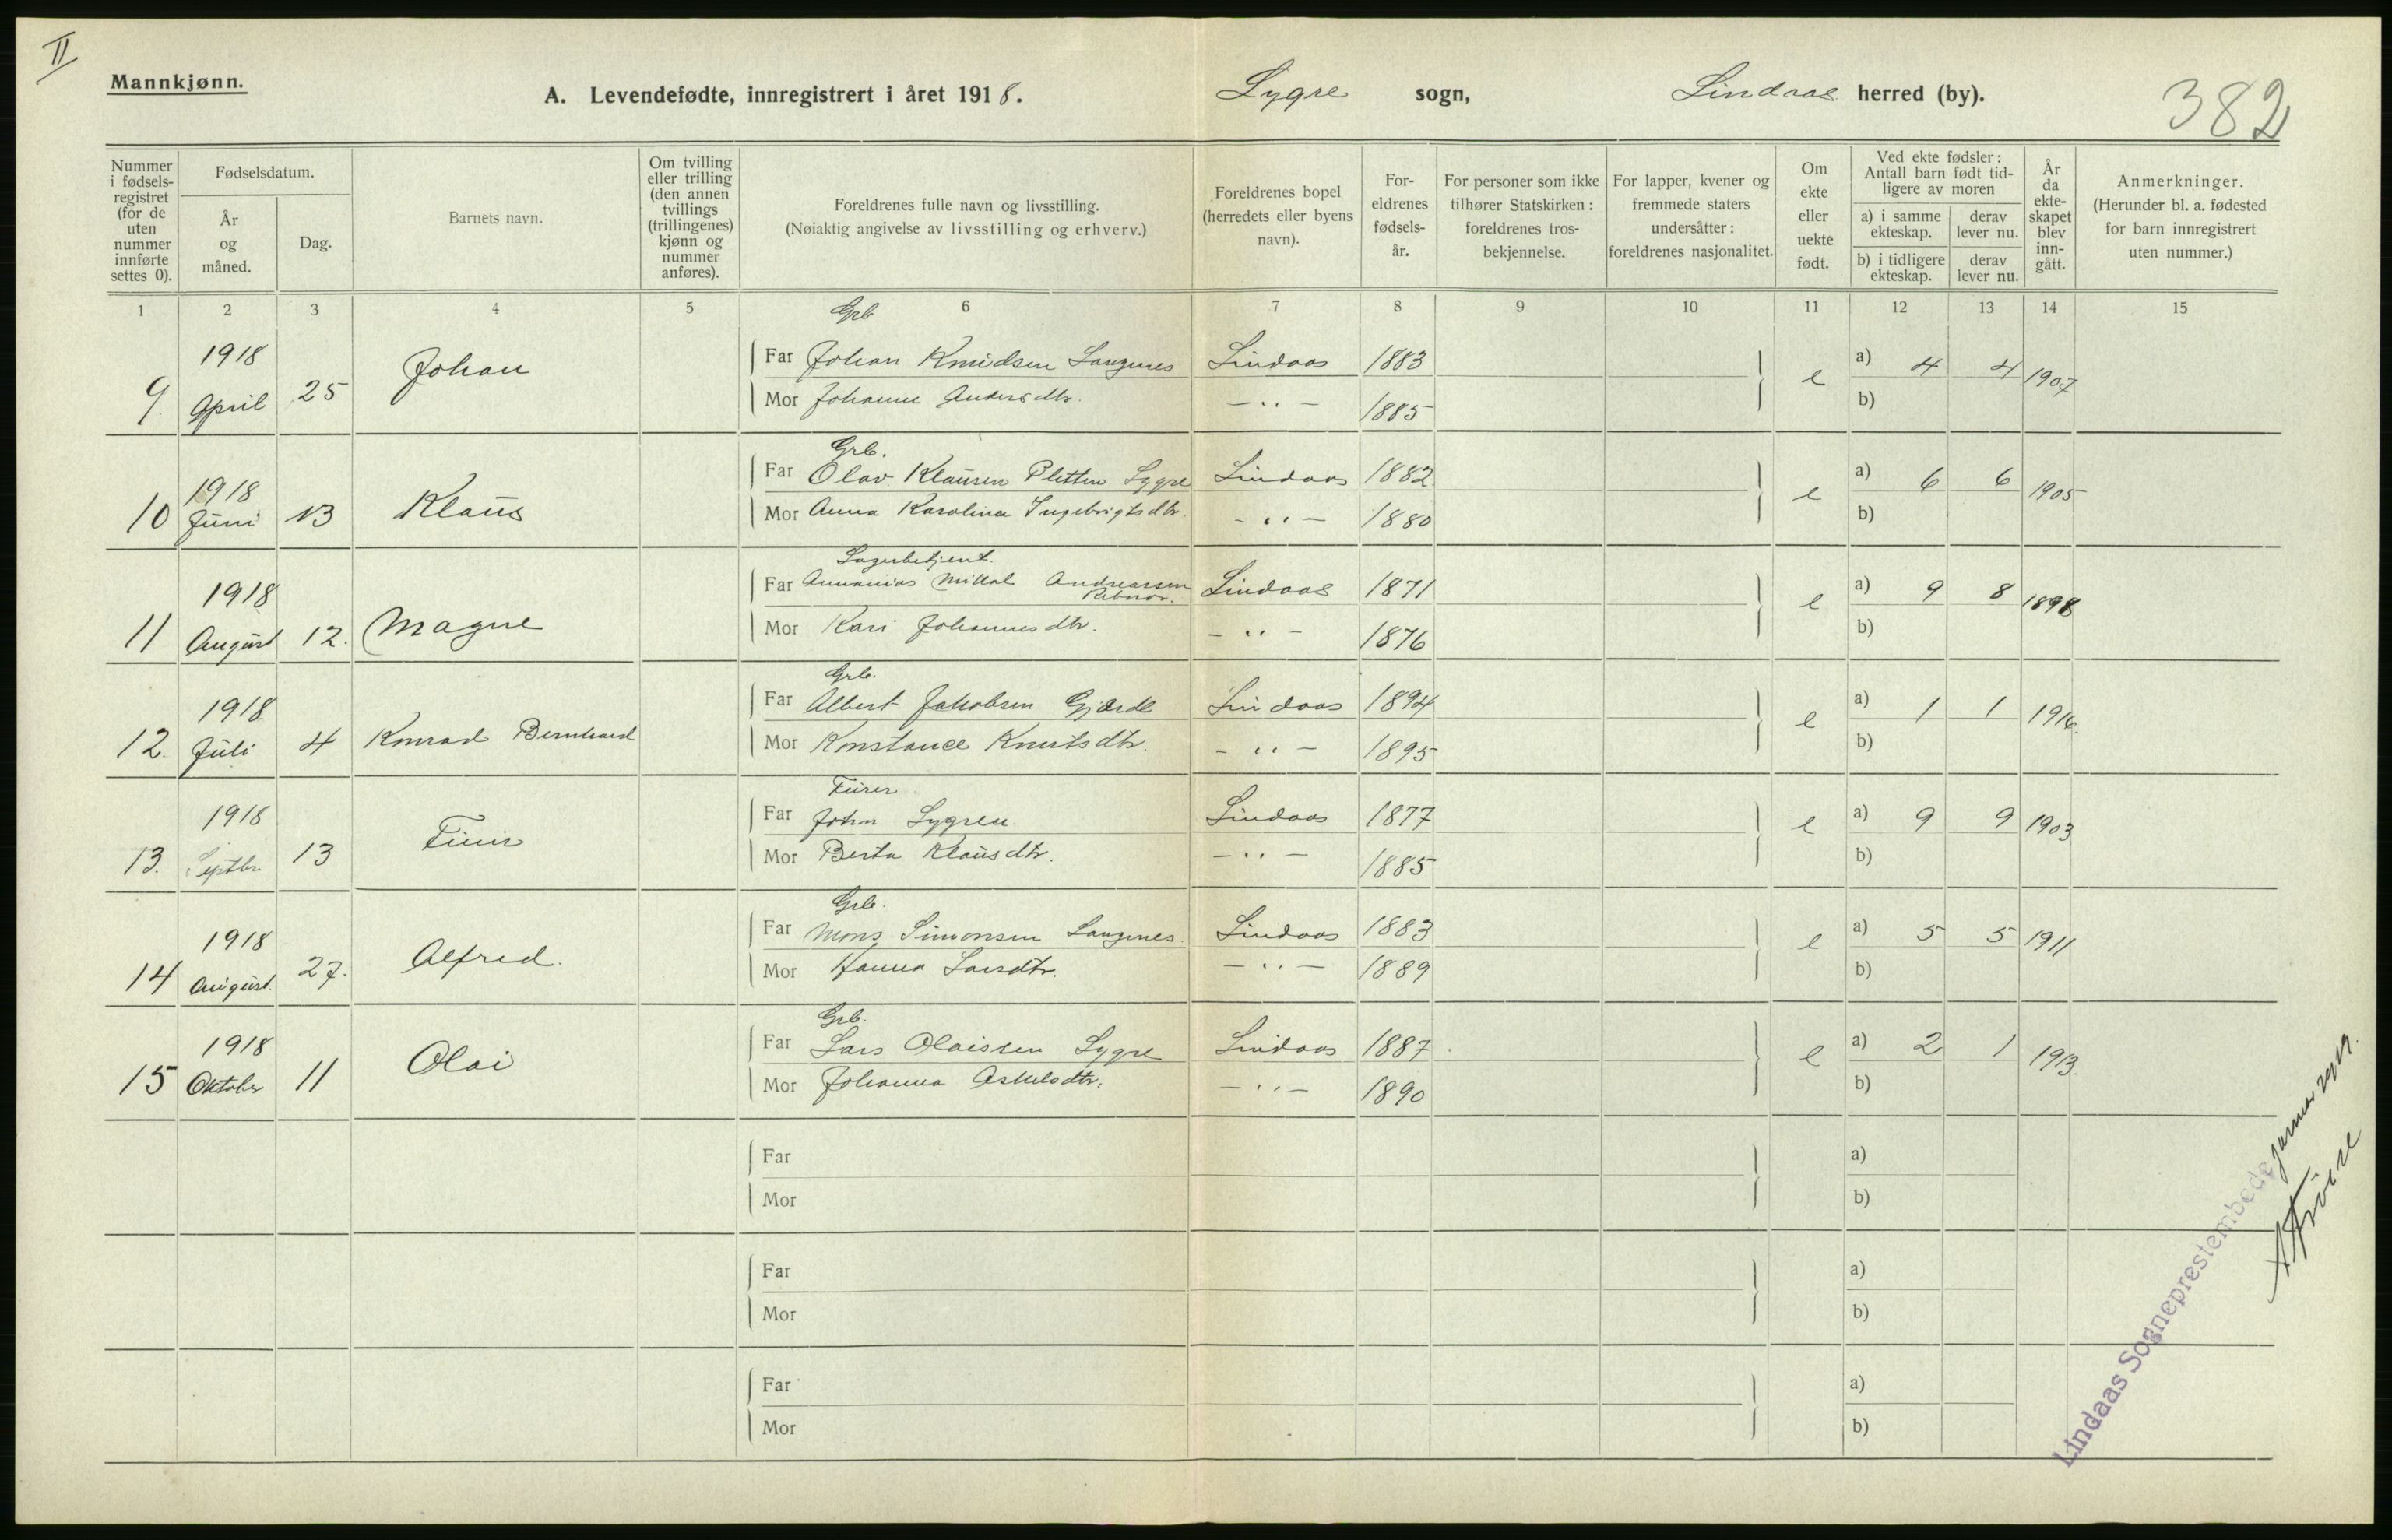 II
Mannkjønn.
A. Levendefødte, innregistrert i året 1918.
Lygre sogn, Lindaas herred (by).
382
Nummer i fødsels-registret (for de uten nummer innførte settes 0).
Fødselsdatum.
År og måned.
Dag.
Barnets navn.
Om tvilling eller trilling (den annen tvillings (trillingenes) kjønn og nummer anføres).
Foreldrenes fulle navn og livsstilling.
(Nøiaktig angivelse av livsstilling og erhverv.)
Foreldrenes bopel (herredets eller byens navn).
For-eldrenes fødsels-år.
For personer som ikke tilhører Statskirken: foreldrenes tros-bekjennelse.
For lapper, kvener og fremmede staters undersåtter: foreldrenes nasjonalitet.
Om ekte eller uekte født.
Ved ekte fødsler: Antall barn født tid-ligere av moren
a) i samme ekteskap.
derav lever nu.
b) i tidligere ekteskap.
derav lever nu.
År da ekte-skapet blev inn-gått.
Anmerkninger.
(Herunder bl. a. fødested for barn innregistrert uten nummer.)
1 2 3 4 5 6 7 8 9 10 11 12 13 14 15
Grb
9. 1918 April 25 Johan
Far Johan Knudsen Langenes Lindaas 1883 e a) 4 4 1907
Mor Johanne Andersdtr. – " – 1885 b)
Grb.
10 1918 Juni 13 Klaus
Far Olav Klausen Pletten Lygre Lindaas 1882 e a) 6 6 1905
Mor Anna Karolina Ingebrigtsdtr. – " – 1880 b)
Lagerbetjent.
11 1918 August 12. Magne
Far Annanias Mikal Andreassen Lindaas 1871 e a) 9 8 1898
Mor Kari Johannesdtr. – " – 1876 b)
Grb.
12. 1918 Juli 4 Konrad Bernhard
Far Albert Jakobsen Gjærde Lindaas 1894 e a) 1 1 1916.
Mor Konstance Knutsdtr. – " – 1895 b)
13. 1918 Septbr 13 Finn
Far John Lygren Lindaas 1877 e a) 9 9 1903
Mor Berta Klausdtr. – " – 1885 b)
Grb.
14 1918 August 27. Alfred.
Far Mons Simonsen Langenes. Lindaas 1883 e a) 5 5 1911
Mor Hanna Larsdtr. – " – 1889 b)
Grb.
15 1918 Oktober 11 Olai
Far Lars Olaissen Lygre Lindaas 1887 e a) 2 1 1913
Mor Johanna Askelsdtr. – " – 1890 b)
Far a)
Mor b)
Far a)
Mor b)
Far a)
Mor b)
Lindaas Sogneprestembede januar 1919.